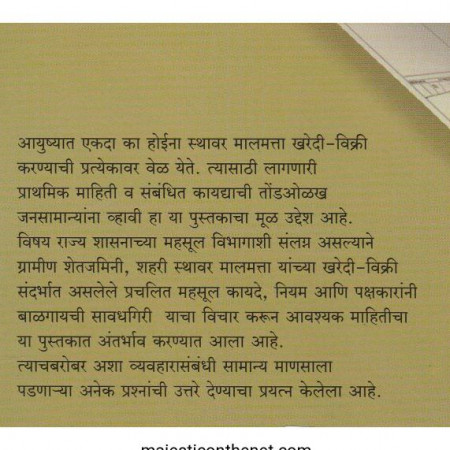 आयुष्यात एकदा का होईना स्थावर मालमत्ता खरेदी-विक्री
करण्याची प्रत्येकावर वेळ येते. त्यासाठी लागणारी
प्राथमिक माहिती व संबंधित कायद्याची तोंडओळख
जनसामान्यांना व्हावी हा या पुस्तकाचा मूळ उद्देश आहे.
विषय राज्य शासनाच्या महसूल विभागाशी संलग्न असल्याने
ग्रामीण शेतजमिनी, शहरी स्थावर मालमत्ता यांच्या खरेदी-विक्री
संदर्भात असलेले प्रचलित महसूल कायदे, नियम आणि पक्षकारांनी
बाळगायची सावधगिरी याचा विचार करून आवश्यक माहितीचा
या पुस्तकात अंतर्भाव करण्यात आला आहे.
त्याचबरोबर अशा व्यवहारासंबंधी सामान्य माणसाला
पडणाऱ्या अनेक प्रश्नांची उत्तरे देण्याचा प्रयत्न केलेला आहे.
majesticonthenet.com